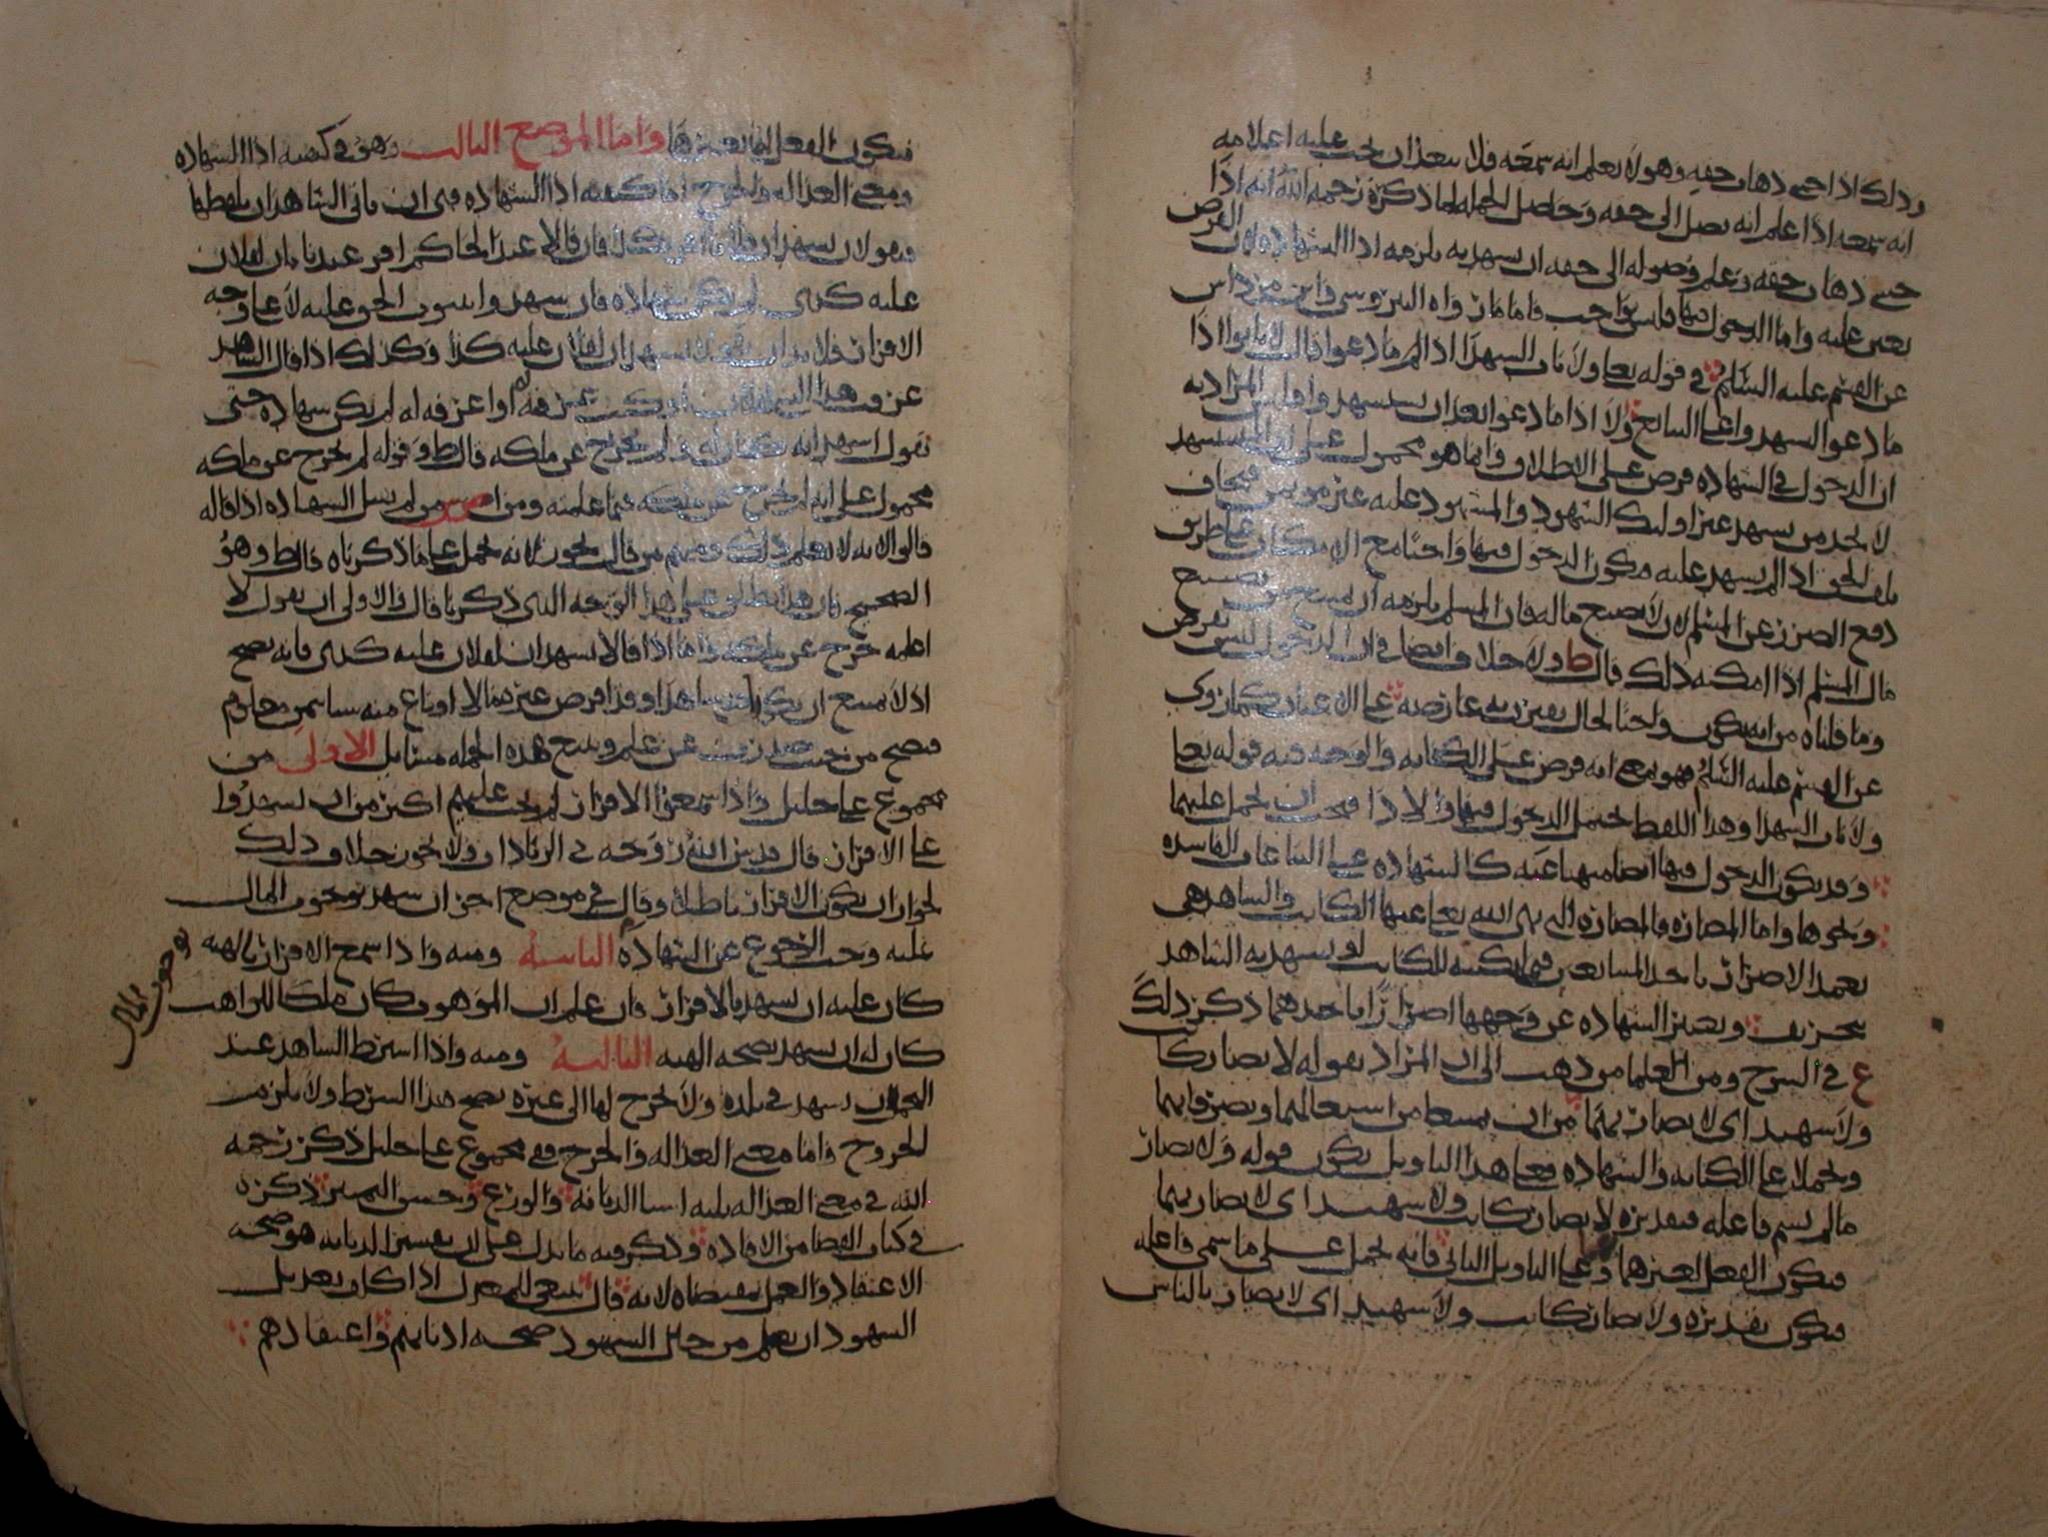 وذلك اذا خشي ذهاب حقه وهو لا يعلم انه سمعه فلا يبعد ان يجب عليه اعلامه
انه سمعه اذا علم انه يصل الى حقه وحاصل الجمله لما ذكره رحمه الله انه اذا
خشي ذهاب حقه وعلم وصوله الى حقه ان يشهد به يلزمه اذا الشهاده لان الفرض
يعين عليه واما الدخول فيها فليس بواجب فاما ما رواه النيروسي وابن
عن القسم عليه السلام في قوله تعالى ولا ياب الشهدا اذا ما دعوا قال لا يابوا اذا
ما دعوا ليشهدوا على البايع ولا اذا ما دعوا بعد ان يستشهدوا فليس المراد به
ان الدخول في الشهاده فرض على الاطلاق وانما هو محمول على
لا يجد من يشهد غير اوليك الشهود والمشهود عليه غير مومن فيخاف
تلف الحق اذا لم يشهد عليه فيكون الدخول فيها واجبا مع الامكان على طريق
دفع الضرر عن المسلم لان لا يضيع ماله فان المسلم يلزمه ان يمنع من تضييع
مال المسلم اذا امكنه ذلك قال ط ولا خلاف ايضا في ان الدخول ليس بفرض
وما قلناه من انه يكون واجبا لحال يقترن به عارضه على الاعيان كما روي
عن القسم عليه السلم فهو بمعنى انه فرض على الكفايه والوجه فيه قوله تعالى
ولا ياب الشهدا وهذا اللفظ يحتمل الدخول فيها والاداء فيجب ان يحمل عليهما
وقد يكون الدخول فيها ايضا منهيا عنه كالشهاده على البياعات الفاسده
ونحوها واما المضاره فالمضاره التي نهى الله تعالى عنها الكاتب والشاهد هي
تعمد الاضرار باحد المتبايعين فيما يكتبه الكاتب او يشهد به الشاهد
بتحريف وتغيير الشهاده عن وجهها اضرارا باحدهما ذكر ذلك
ع في الشرح ومن العلما من ذهب الى ان المراد بقوله لا يضار كاتب
ولا شهيد اي لا يضار بهما من ان يمنعا من اشغالهما ويضر فايهما
ويحملا على الكتابه والشهاده فعلى هذا التاويل يكون قوله ولا يضار
ما لم يسم فاعله فتقديره لا يضار كاتب ولا شهيد اي لا يضار بهما
فيكون الفعل لغيرهما وعلى التاويل الثاني فانه يحمل على ما سمي فاعله
فيكون تقديره ولا يضار كاتب ولا شهيد اي لا يضار بالناس
فيكون الفعل لهما لا لغيرهما واما الموضع الثالث وهو في كيفيه اداء الشهاده
ومعنى العداله والجرح اما كيفيه اداء الشهاده فهي ان ياتي الشاهدان بلفظها
وهو لان يشهد ان فلانا اقر بكذا فان قالا عند الحاكم اقر عندنا بان لفلان
عليه كذى لم يكن شهاده فان شهدوا بثبوت الحق عليه لا على وجه
الاقرار فلا بد ان يقولا نشهد ان لفلان عليه كذا وكذلك اذا قال الشاهد
عرفت هذا الشي لفلان او كنت عرفته او اعرفه له لم يكن شهاده حتى
يقول اشهد انه كان له ولم يخرج عن ملكه قال ط وقوله لم يخرج عن ملكه
محمول على انه لم يخرج عن ملكه فيما علمته ومن من لم يقبل الشهاده اذا قاله
قالوا لانه لا يعلم ذلك ومنهم من قال يجوز لانه يحمل على ما ذكرناه قال ط وهو
الصحيح فان هذا يطلق على هذا الوجه الذي ذكرنا قال والاولى ان يقول لا
اعلمه خرج عن ملكه واما اذا قالا نشهد ان لفلان عليه كذى فانه يصح
اذ لا يمتنع ان يكونا قد شاهدا وقد اقرض غيره مالا او باع منه شيا بثمن معلوم
فصح من حيث صدرت عن علم ويتبع هذه الجمله مسايل الاولى من
مجموع علي خليل واذا سمعوا الاقرار لم يجب عليهم اكثر من ان يشهدوا
على الاقرار قال قدس الله روحه في الزيادات ولا يجوز خلاف ذلك
لجواز ان يكون الاقرار باطلا وقال في موضع اخر ان شهد بوجوب المال
عليه وجب الرجوع عن الشهاده الثانيه ومنه واذا سمع الاقرار بالهبه
كان عليه ان يشهد بالاقرار وان علم ان الموهوب كان ملكا للواهب
كان له ان يشهد بصحه الهبه الثالثه ومنه واذا اشترط الشاهد عند
التحمل ان يشهد في بلده ولا يخرج لها الى غيره يصح هذا الشرط ولا يلزمه
الخروج واما معنى العداله والجرح ففي مجموع علي خليل ذكر رحمه
الله في معنى العداله ثلثه اشيا الديانه والورع وحسن التمييز ذكره
في كتاب القضا من الافاده وذكر فيه ما يدل على ان تفسير الديانه هو صحه
الاعتقاد والعمل بمقتضاه لانه قال ينبغي للمعدل اذا كان بعديل
الشهود ان يعلم من حال الشهود صحه ادياناتهم واعتقادهم